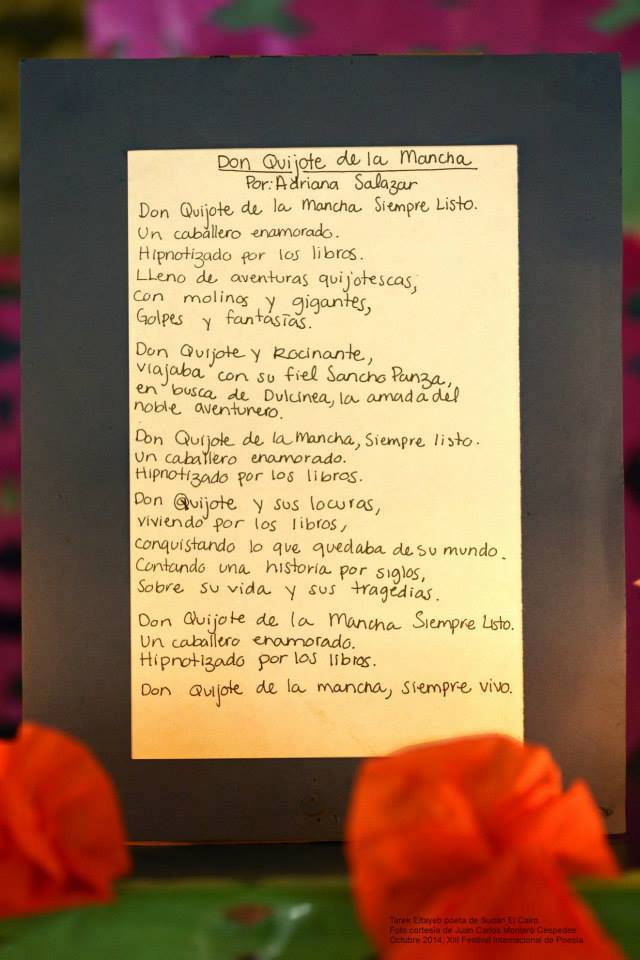 Don Quijote de la Mancha
Por: Adriana Salazar
Don Quijote de la Mancha Siempre Listo.
Un caballero enamorado.
Hipnotizado por los libros.
Lleno de aventuras quijotescas,
con molinos y gigantes,
Golpes y fantasías.
Don Quijote y Rocinante,
viajaba con su fiel Sancho Panza,
en busca de Dulcinea, la amada del
noble aventurero.
Don Quijote de la Mancha, Siempre listo.
un caballero enamorado.
Hipnotizado por los libros.
Don Quijote y sus locuras,
viviendo por los libros,
conquistando lo que quedaba de su mundo.
Contando una historia por siglos,
Sobre su vida y sus tragedias.
Don Quijote de la Mancha Siempre Listo.
Un caballero enamorado.
Hipnotizado por los libros.
Don Quijote de la mancha, siempre vivo.
Tarek Eltayeb poeta de Sudán El Cairo.
Foto cortesía de Juan Carlos Montero Céspedes
Octubre 2014, XIII Festival Internacional de Poesía